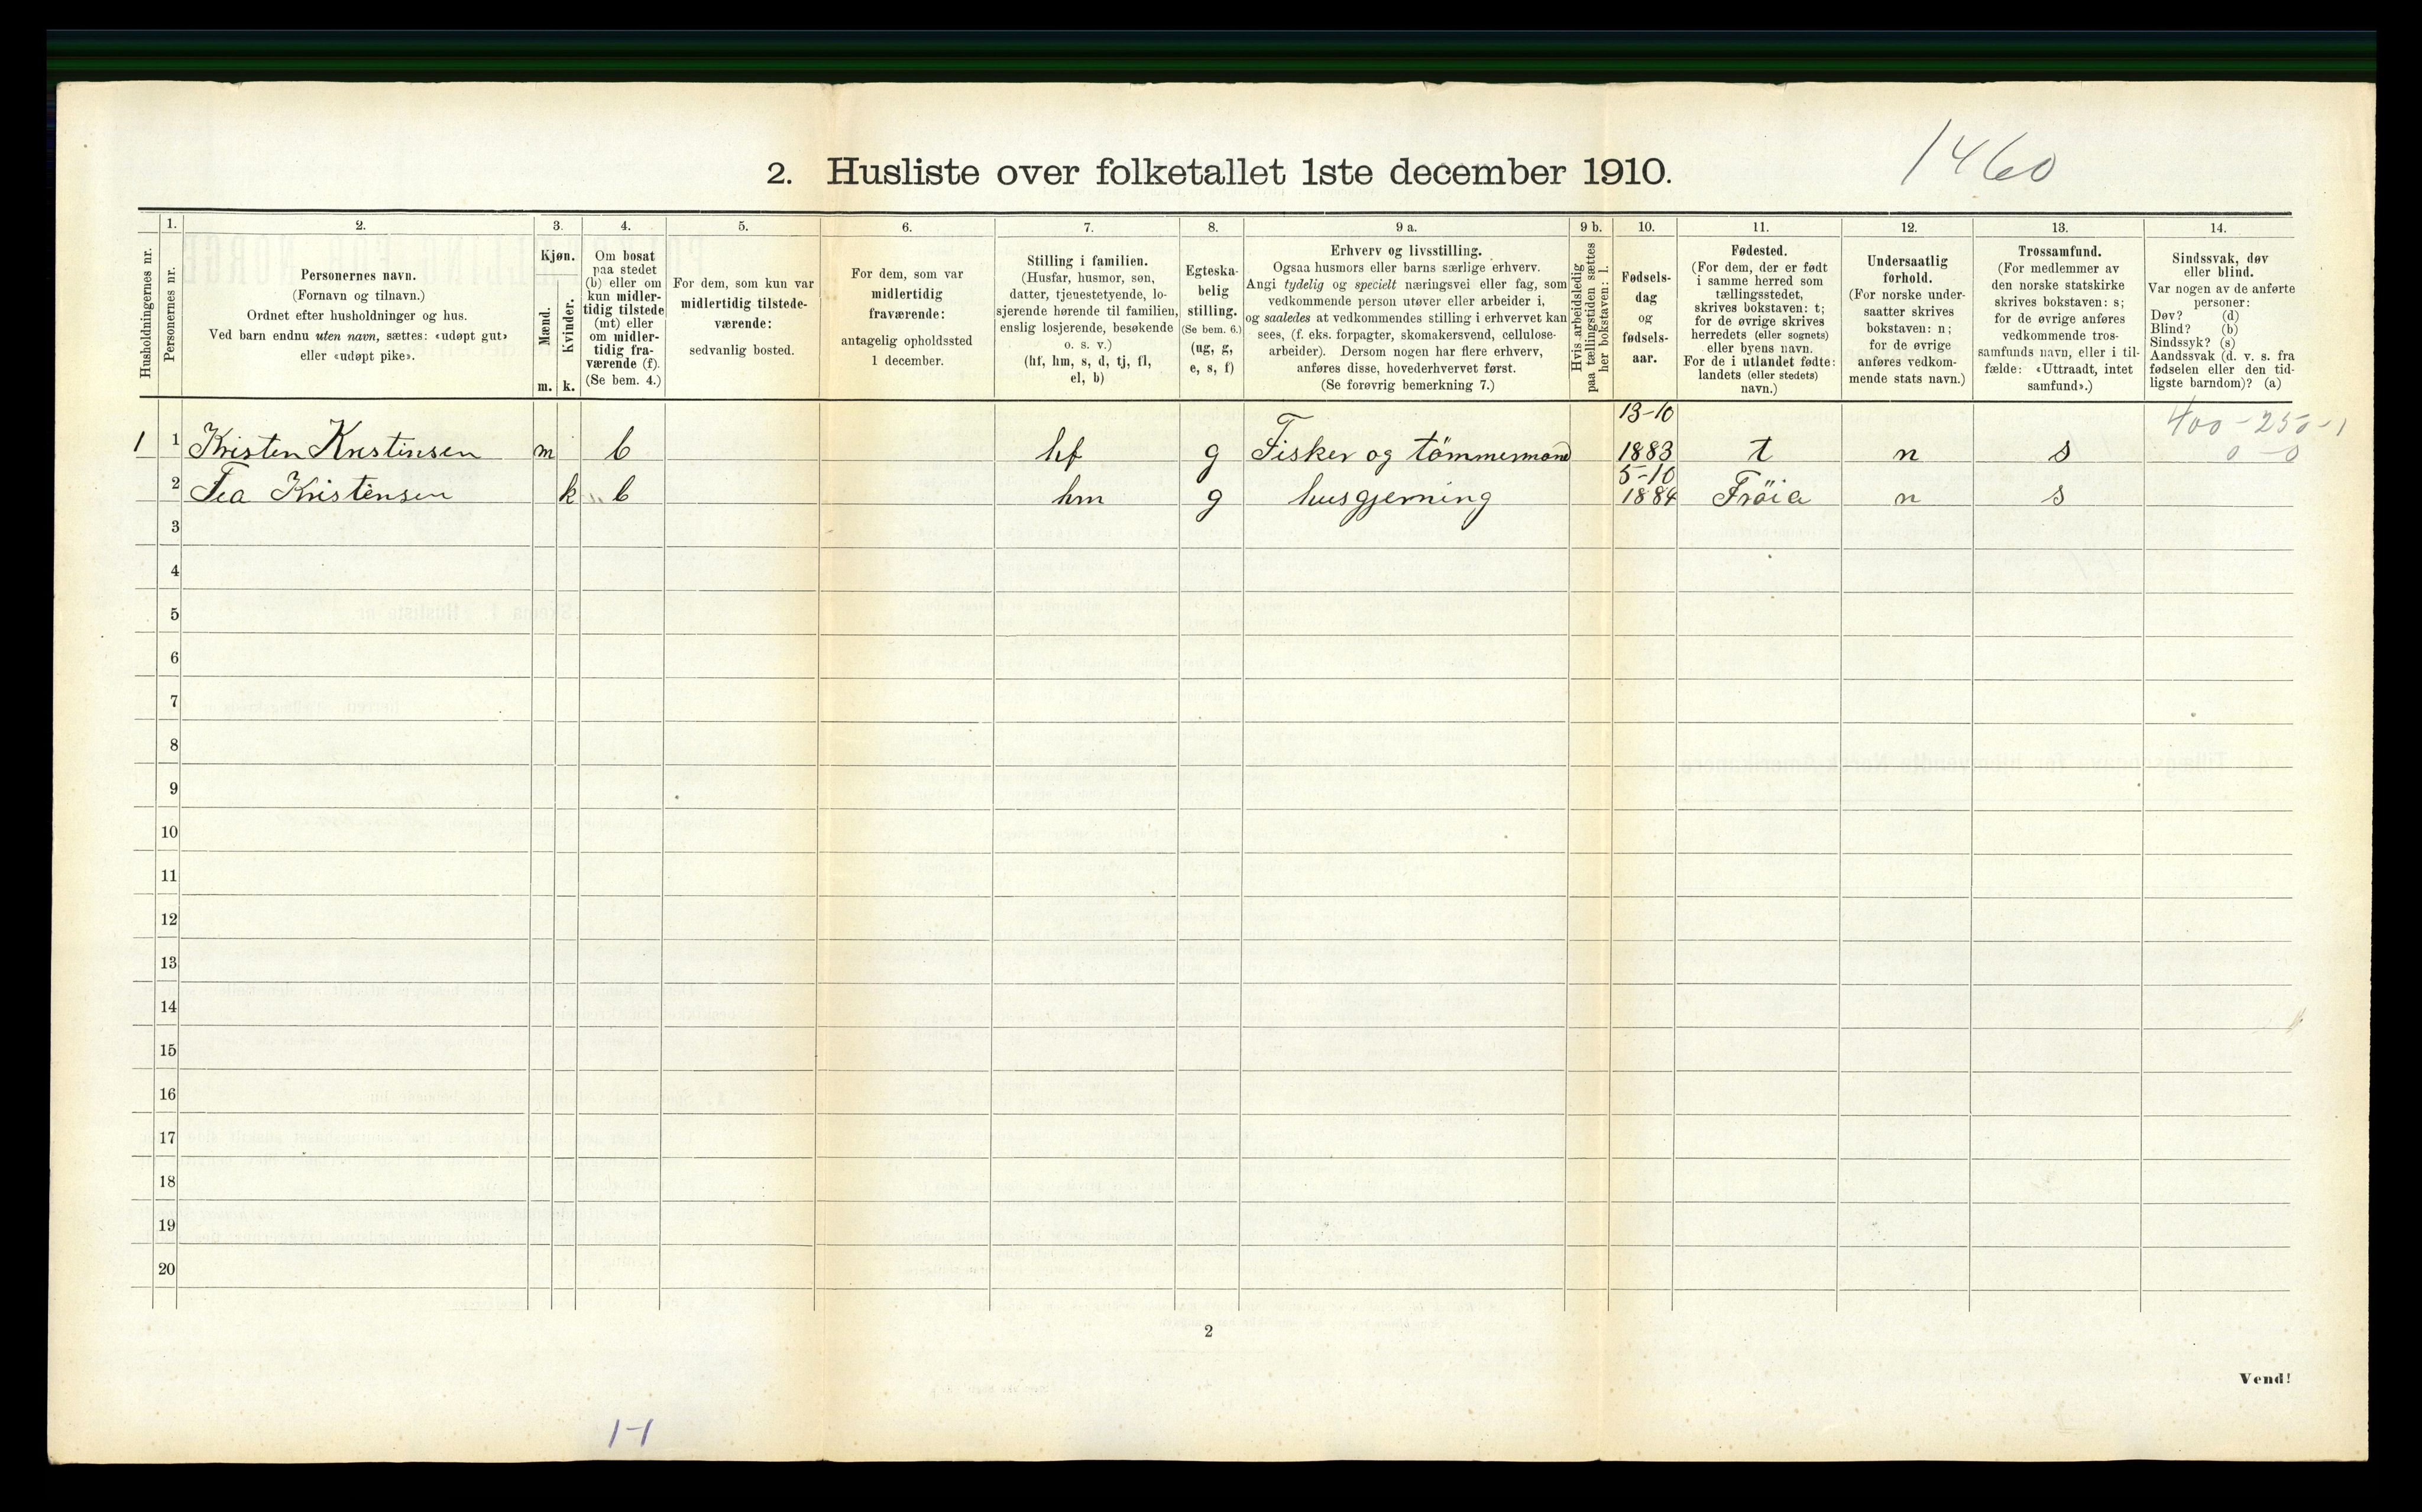 1460
2. Husliste over folketallet 1ste december 1910.
1. 2. 3. 4. 5. 6. 7. 8. 9 a. 9 b. 10. 11. 12. 13. 14.
Husholdningernes nr.
Personernes nr.
Personernes navn.
(Fornavn og tilnavn.)
Ordnet efter husholdninger og hus.
Ved barn endnu uten navn, sættes: «udøpt gut»
eller «udøpt pike».
Kjøn.
Mænd.
Kvinder.
m. k.
Om bosat
paa stedet
(b) eller om
kun midler-
tidig tilstede
(mt) eller
om midler-
tidig fra-
værende (f).
(Se bem. 4.)
For dem, som kun var
midlertidig tilstede-
værende:
sedvanlig bosted.
For dem, som var
midlertidig
fraværende:
antagelig opholdssted
1 december.
Stilling i familien.
(Husfar, husmor, søn,
datter, tjenestetyende, lo-
sjerende hørende til familien,
enslig losjerende, besøkende
o. s. v.)
(hf, hm, s, d, tj, fl,
el, b)
Egteska-
belig
stilling.
(Se bem. 6.)
(ug, g,
e, s, f)
Erhverv og livsstilling.
Ogsaa husmors eller barns særlige erhverv.
Angi tydelig og specielt næringsvei eller fag, som
vedkommende person utøver eller arbeider i,
og saaledes at vedkommendes stilling i erhvervet kan
sees, (f. eks. forpagter, skomakersvend, cellulose-
arbeider). Dersom nogen har flere erhverv,
anføres disse, hovederhvervet først.
(Se forøvrig bemerkning 7.)
Hvis arbeidsledig
paa tællingstiden sættes
her bokstaven: l.
Fødsels-
dag
og
fødsels-
aar.
Fødested.
(For dem, der er født
i samme herred som
tællingsstedet,
skrives bokstaven: t;
for de øvrige skrives
herredets (eller sognets)
eller byens navn.
For de i utlandet fødte:
landets (eller stedets)
navn.)
Undersaatlig
forhold.
(For norske under-
saatter skrives
bokstaven: n;
for de øvrige
anføres vedkom-
mende stats navn.)
Trossamfund.
(For medlemmer av
den norske statskirke
skrives bokstaven: s;
for de øvrige anføres
vedkommende tros-
samfunds navn, eller i til-
fælde: «Uttraadt, intet
samfund».)
Sindssvak, døv
eller blind.
Var nogen av de anførte
personer:
Døv? (d)
Blind? (b)
Sindssyk? (s)
Aandssvak (d. v. s. fra
fødselen eller den tid-
ligste barndom)? (a)
13-10
400-250-1
1 1 Kristen Kristensen m b hf g Fisker og tömmermand 1883 t n s 0-0
5-10
2 Tea Kristensen k b hm g husgjerning 1884 Fröia n s
3
4
5
6
7
8
9
10
11
12
13
14
15
16
17
18
19
20
2
Vend!
1-1